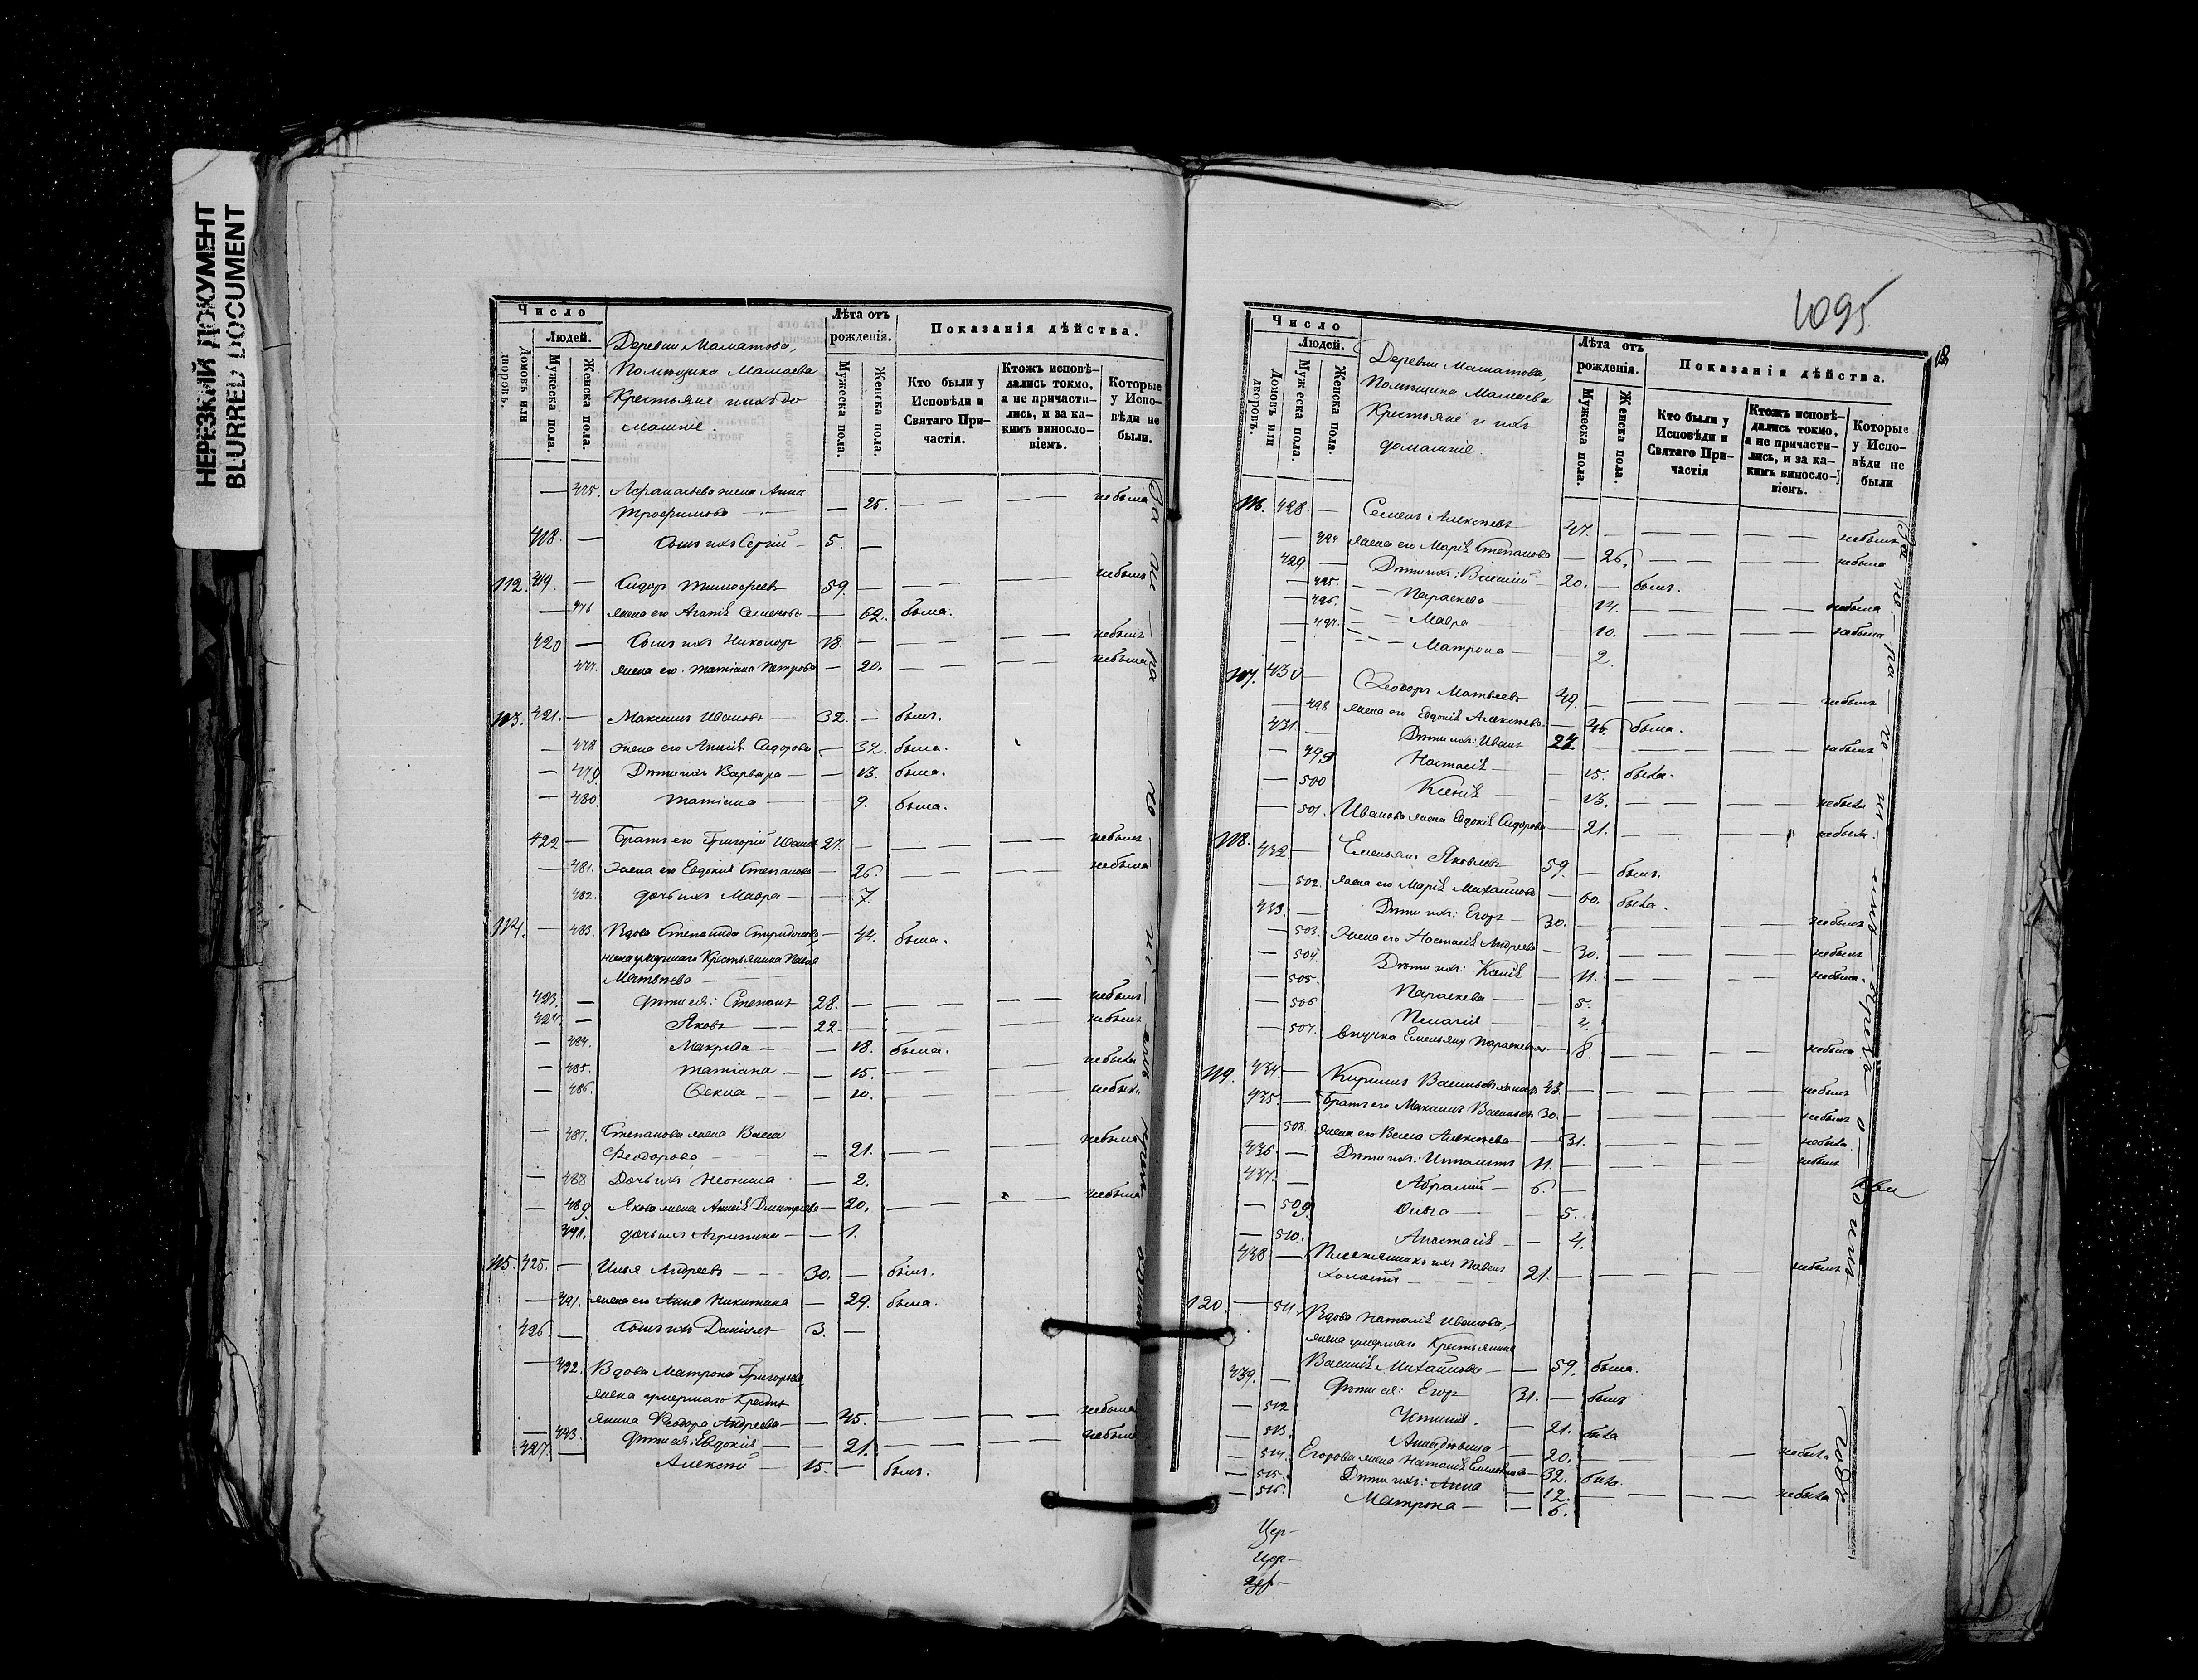 НЕРЕЗКИЙ ДОКУМЕНТ
BLURRED DOCUMENT
Число
Людей.
Домовъ или дворовъ.
Мужеска пола.
Женска пола.
Деревни Маматова,
Помѣщика Мамаева
Крестьяне и ихъ до
машніе.
Лѣта отъ
рожденія.
Мужеска пола.
Женска пола.
Показанія дѣйства.
Кто были у
Исповѣди и
Святаго При-
частія.
Ктожъ исповѣ-
дались токмо,
а не причасти-
лись, и за ка-
кимъ винослo-
віемъ.
Которые
у Испо-
вѣди не
были.
— 475. жена Анна
Трофимова — 25. — — — небыла
418. — Сынъ ихъ Сергій 5. —
112. 419. — Сидоръ Тимофеевъ 59. — — — — небылъ
— 476 жена его Агапія Семенова — 62. была.
420 — Сынъ ихъ Никаноръ 18. — — — небылъ
477. жена его Татіана Петрова — 20. — — — небыла
113. 421. — Максимъ Ивановъ 32. — былъ.
— 478 жена его Анисія Сидорова — 32. была.
— 479 Дѣти ихъ Варвара — — 13. была.
— 480. Татіана — — 9. была.
422 — Братъ его Григорій Ивановъ 27. — — — — небылъ
— 481. жена его Евдокія Степанова — 26. — — — небыла
482. дочь ихъ Мавра — — 7.
114. — 483. Вдова Степанида Спиридонова — 47. была.
жена умершаго Крестьянина Павла
Матвѣева —
423. — дѣти ея: Степанъ 28. — — — — небылъ
424. — Яковъ — 22. — — — — небылъ
— 484. Макрида — — 18. была.
— 485. Татіана — — 15. — — — небыла
— 486. Ѳекла — — 10. — — — небыла
— 487. Степанова жена Васса
Ѳеодорова — 21. — — — небыла
— 488 Дочь ихъ Неонила — 2.
— 489 Якова жена Анисія Дмитріева — 20. — — — небыла
490. дочь ихъ Агрипина — — 1.
115. 425. — Илья Андреевъ — 30. — былъ.
— 491. жена его Анна Никитина — 29. была.
426. — Сынъ ихъ Даніилъ 3. —
— 492. Вдова Матрона Григорьева,
жена умершаго Кресть
янина Ѳеодора Андреева — — 45. — — — небыла
— 493. дѣти ея: Евдокія — — 21. небыла
427. — Алексѣй — 15. — былъ.
1095
Число
Людей.
Домовъ или дворовъ.
Мужеска пола.
Женска пола.
Деревни Маматова,
Помѣщика Мамаева
Крестьяне и ихъ
домашніе.
Лѣта отъ
рожденія.
Мужеска пола.
Женска пола.
Показанія дѣйства.
Кто были у
Исповѣди и
Святаго При-
частія
Ктожъ исповѣ-
дались токмо,
а не причасти-
лись, и за ка-
кимъ винослo-
віемъ.
Которые
у Испо-
вѣди не
были
116. 428. — Семенъ Алексѣевъ 47. — — — — небылъ
— 494 жена его Марія Степанова — 26. — — — небыла
429. — Дѣти ихъ: Василій 20. — былъ.
— 495. Параскева — 14. — — — небыла
— 496. Мавра — 10. — — — небыла
— 497. Матрона — — 2.
117. 430 — Ѳеодоръ Матвѣевъ 49. — — — — небылъ
— 498 жена его Евдокія Алексѣева — 46. была.
431. — Дѣти ихъ: Иванъ 24. — — — — небылъ
— 499 Наталія — — 15. была.
— 500 Ксенія — — 13. — — — небыла
— 501. Иванова жена Евдокія Сидорова — 21. — — — небыла
118. 432. — Емельянъ Яковлевъ 59. — былъ.
— 502. жена его Марія Михайлова — 60. была.
433. — Дѣти ихъ: Егоръ — 30. — — — — небылъ
— 503. жена его Наталія Андреева — 30. — — — небыла
— 504. Дѣти ихъ: Ксенія — 11. — — — небыла.
— 505. Параскева — — 5.
— 506 Пелагія — — 4.
— 507. внучка Емельяну Параскева — 8. — — — небыла
119. 434. — Кирилъ Васильевъ 43. — — — — небылъ
435. — Братъ его Максимъ Васильевъ 30. — — — — небылъ
— 508. жена его Васса Алексѣева — 31. — — — небыла
436. — Дѣти ихъ: Ипполитъ 11. — — — — небылъ
437. — Абрамій — 6. —
— 509. Ольга — — 5.
— 510. Анастасія — — 4.
438 — Племянникъ ихъ Павелъ
21. — — — — небылъ
120. — 511. Вдова Наталія Иванова,
жена умершаго Крестьянина
Василія Михайлова — — 59. была.
439. — дѣти ея: Егоръ 31. — былъ
— 512 Устинія. — 21. была
— 513. 20. — — — небыла
— 514. Егорова жена Наталія Емельянова — 32. была.
— 515. Дѣти ихъ: Анна — 12. — — — небыла
— 516. Матрона — — 6.
Цер-
Цер-
Цер-